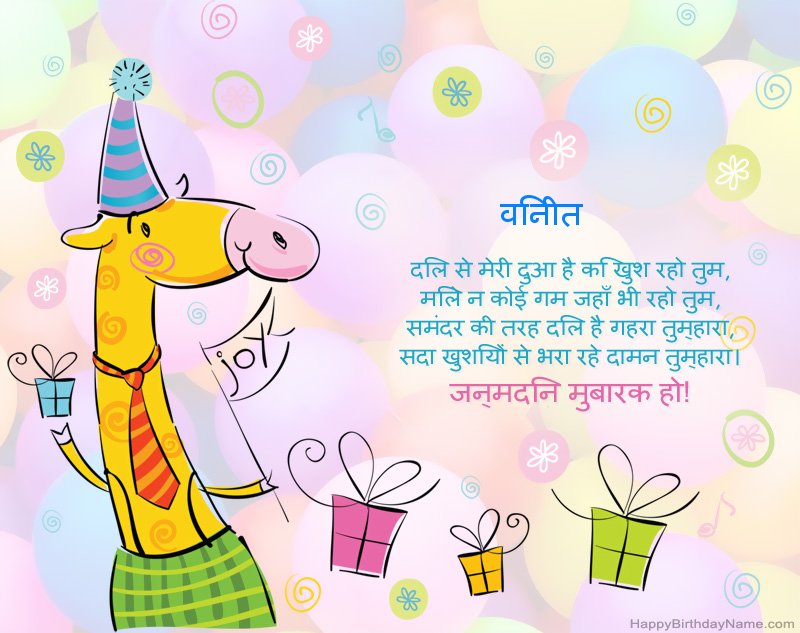 वनिीत
दलि से मेरी दुआ है कि खुश रहो तुम,
मलिे न कोई गम जहाँ भी रहो तुम,
समंदर की तरह दलि है गहरा तुम्‌हारा,
सदा खुशयिों से भरा रहे दामन तुम्‌हारा।
जन्‌मदनि मुबारक हो!
joy
HappyBirthdayName.com